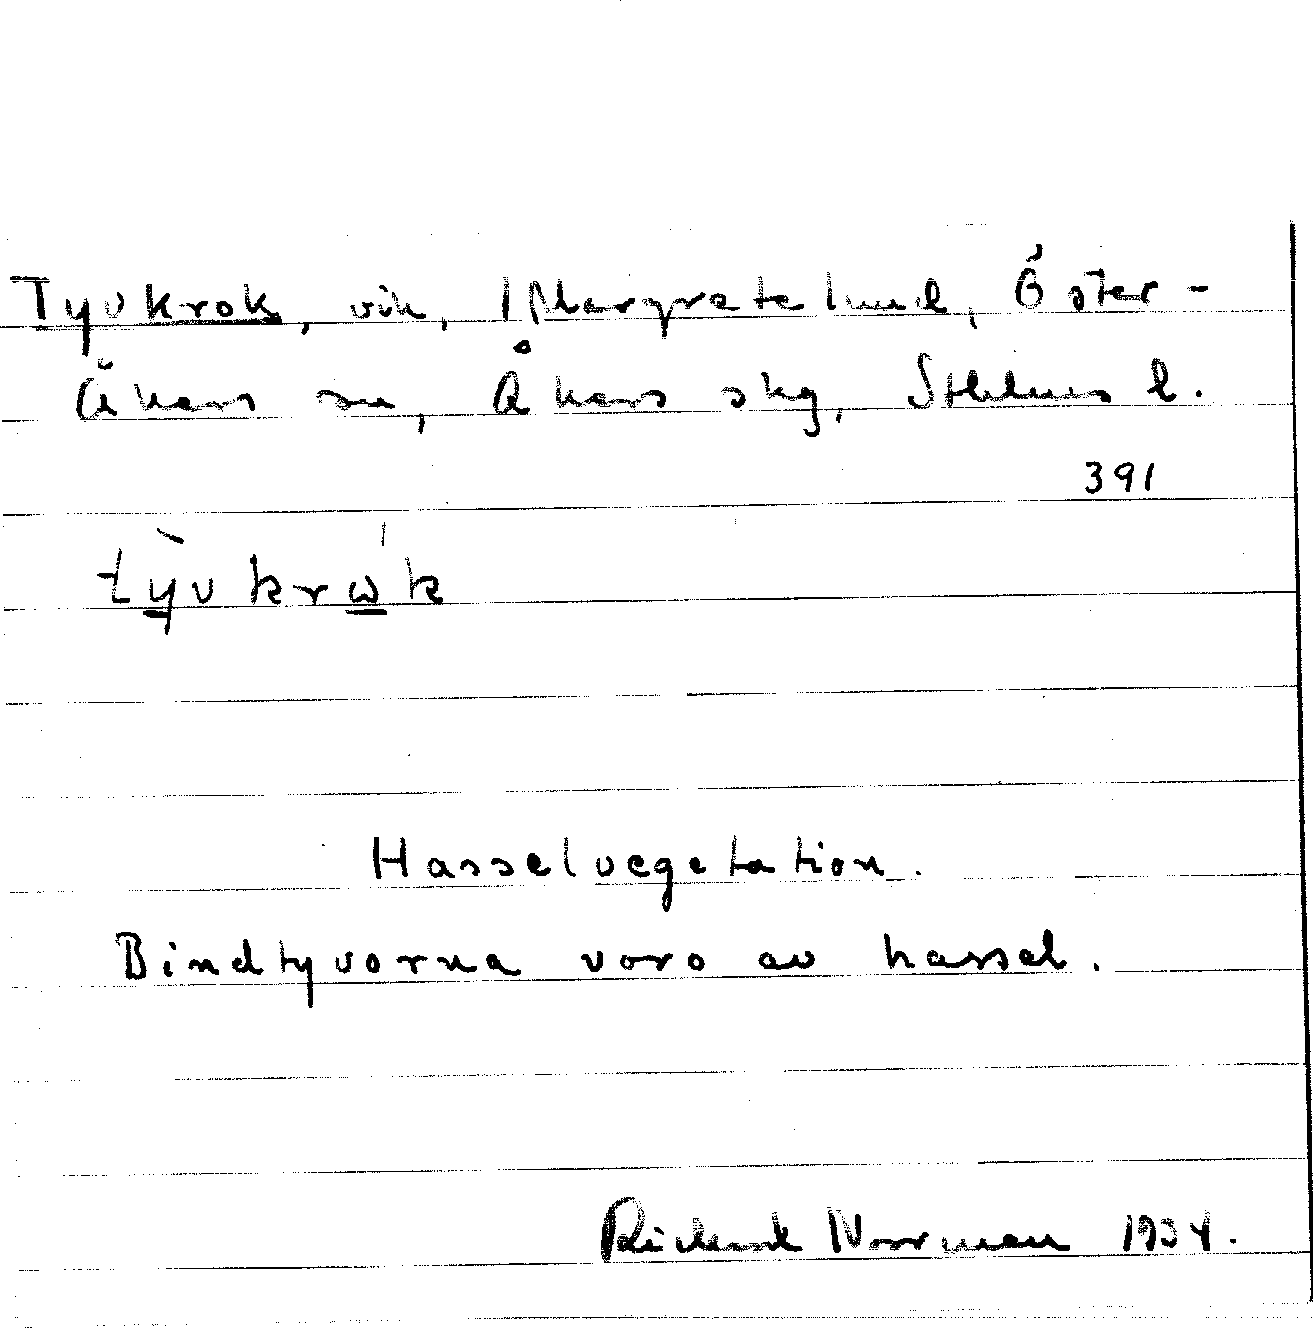 Tyvkrok, vik, Margretelund, Öster-
Åkers sn, Åkers skg, Sthlms l.
391
tỳv krώk
Hasselvegetation.
Bindtyvorna voro av hassel.
Rickard Norrman 1934.